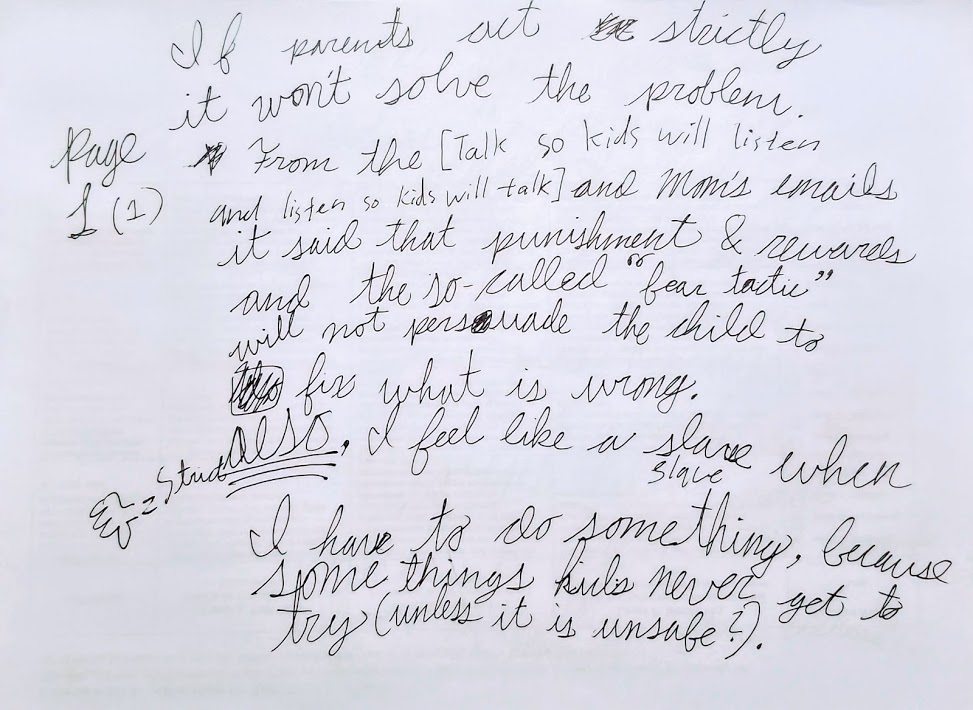 If parents act strictly
it won't solve the problem.
Page
1 (1)
From the [Talk so kids will listen
and listen so kids will talk] and Mom's emails
it said that punishment & rewards
and the so-called "fear tactic"
will not persuade the child to
fix what is wrong.
ALSO, I feel like a slave when
slave
I have to do something, because
some things kids never get to
try (unless it is unsafe?).